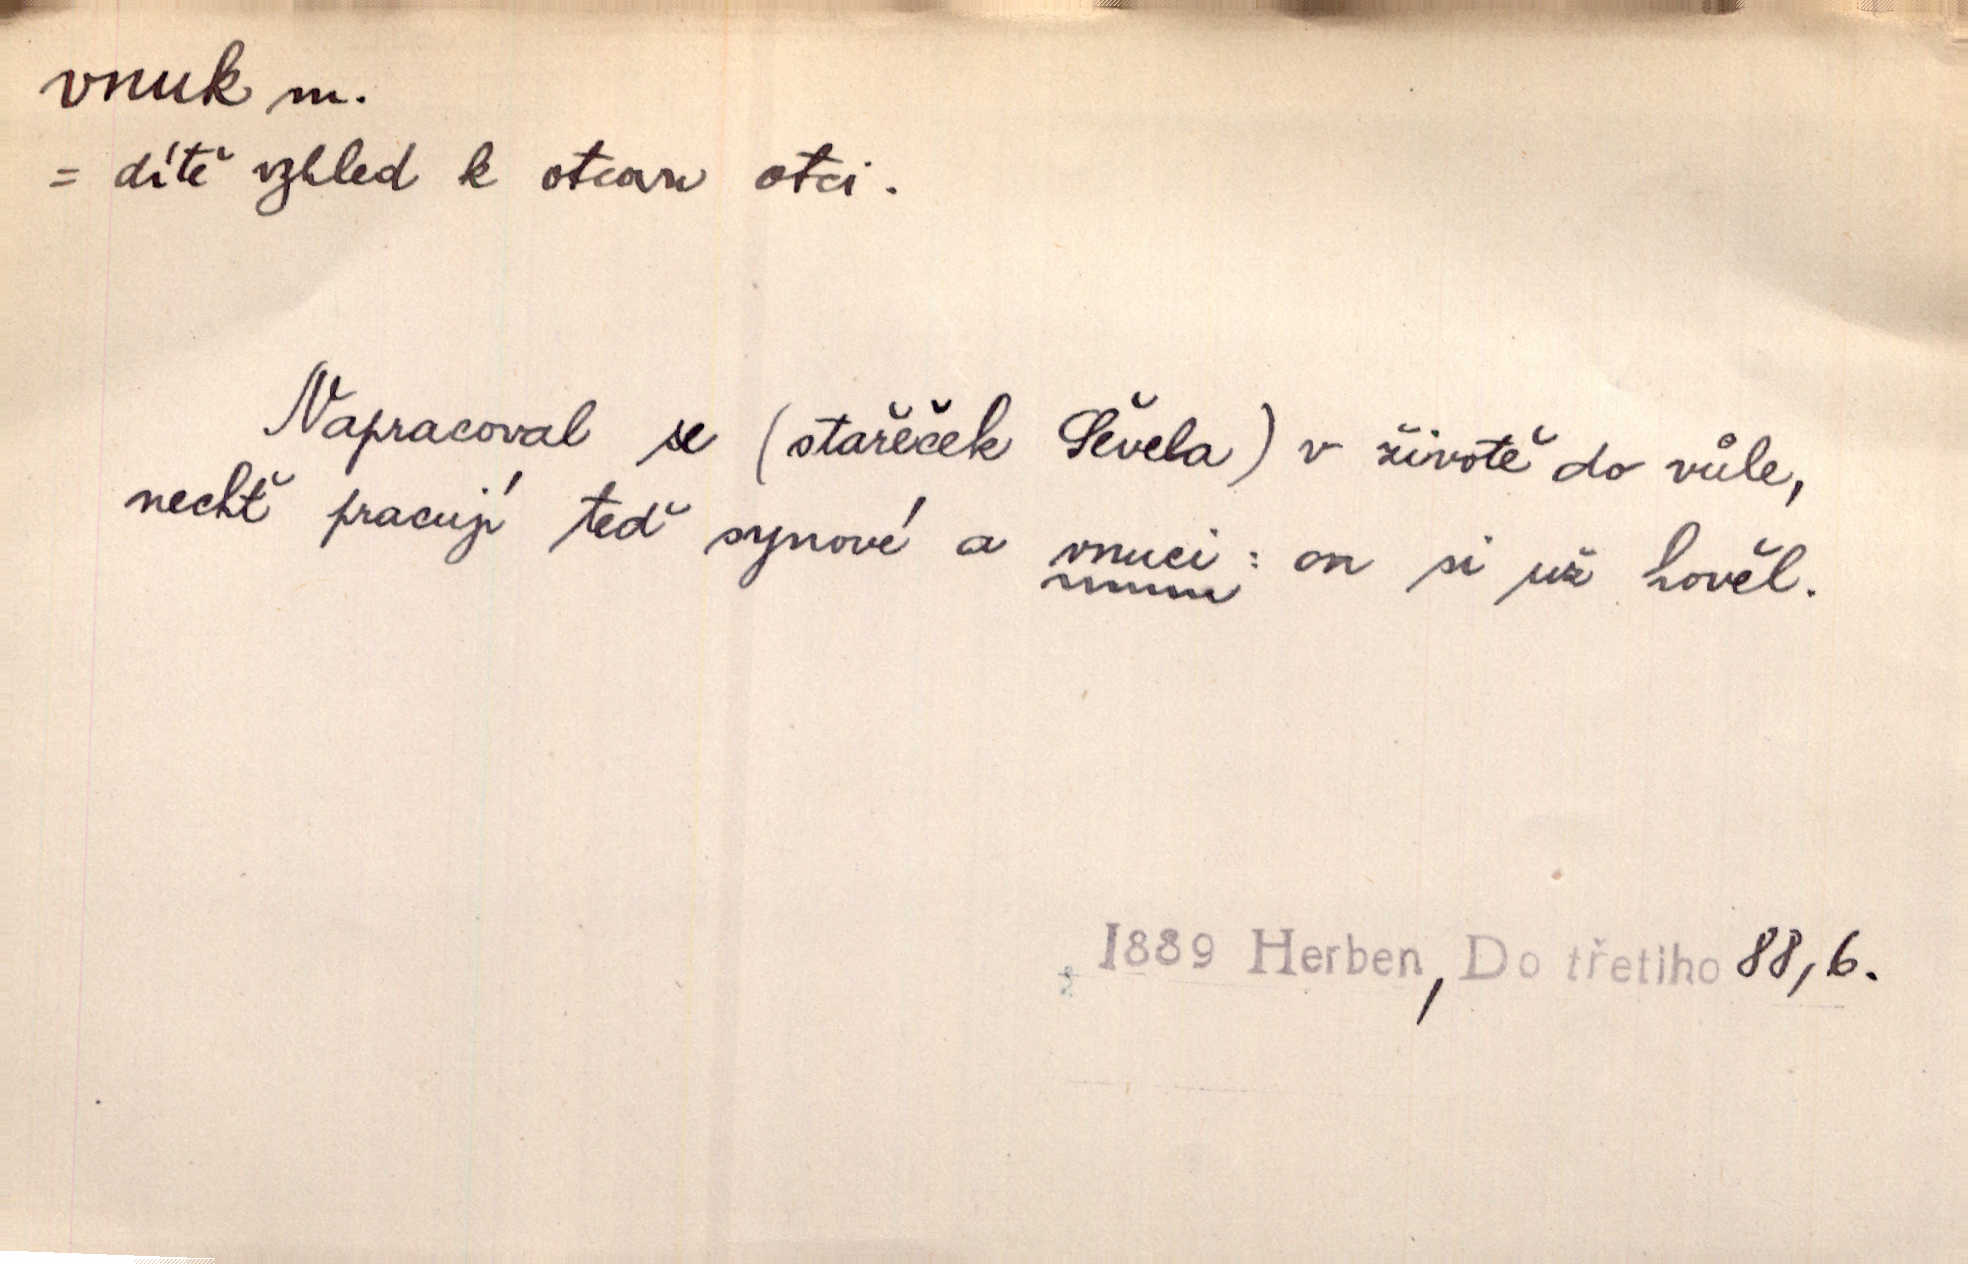 vnuk m.
= dítě vzhled k otcovu otci.
Napracoval se (stařeček Ševela) v životě do vůle,
nechť pracují teď synové a vnuci: on si už hověl.
1889 Herben, Do třetího 88,6.